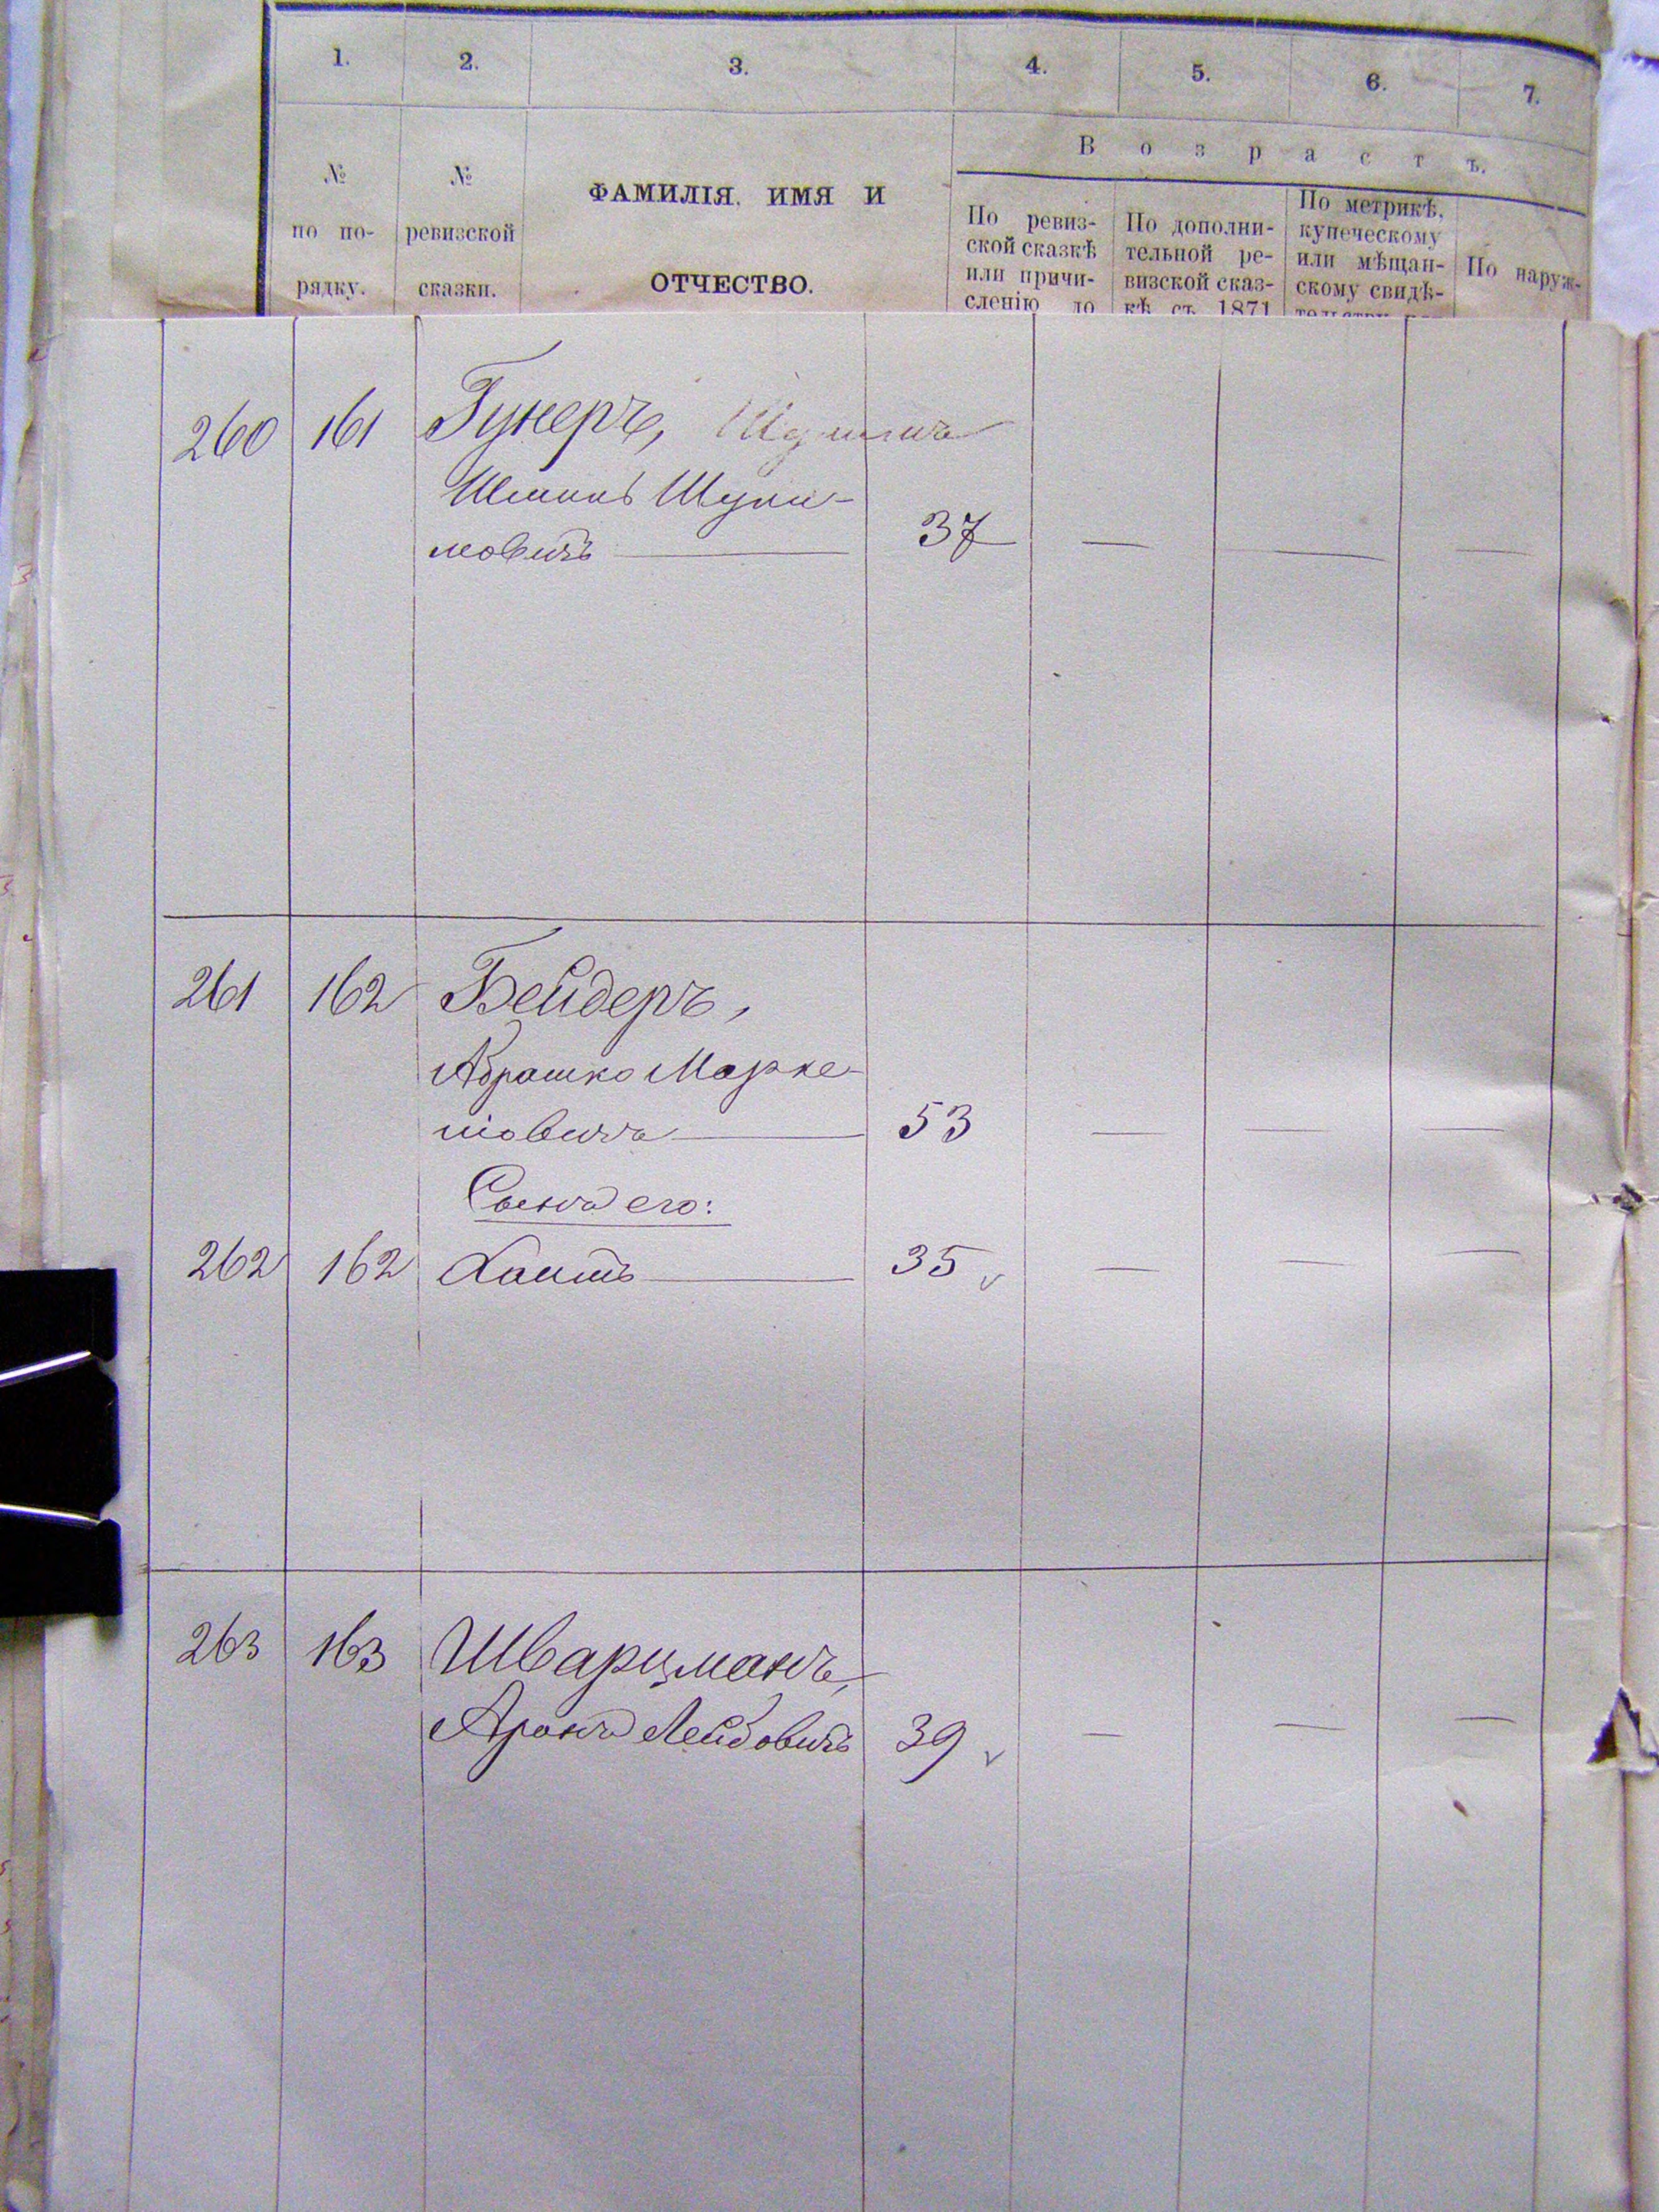 1. 2. 3. 4. 5. 6. 7.
В о з р а с т ъ.
№ по по- рядку.
№ ревизской сказки.
ФАМИЛІЯ, ИМЯ И
ОТЧЕСТВО.
По ревиз-
ской сказкѣ
или причи-
сленію до
По дополни-
тельной ре-
визской сказ-
кѣ съ 1871
По метрикѣ,
купеческому
или мѣщан-
скому свидѣ-
По наруж-
260 161 Гунеръ,
Шули-
мовичъ — 37 — — —
261 162 Бейдеръ,
Абрашко Марке-
шовичъ — 53 — — —
Сынъ его:
262 162 Хаимъ — 35 — — —
263 163 Шварцманъ,
Аронъ Лейбовичъ 39 — — —